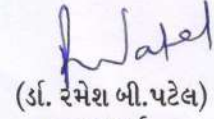 (ર્ડા. રમેશ બી.પટેલ)